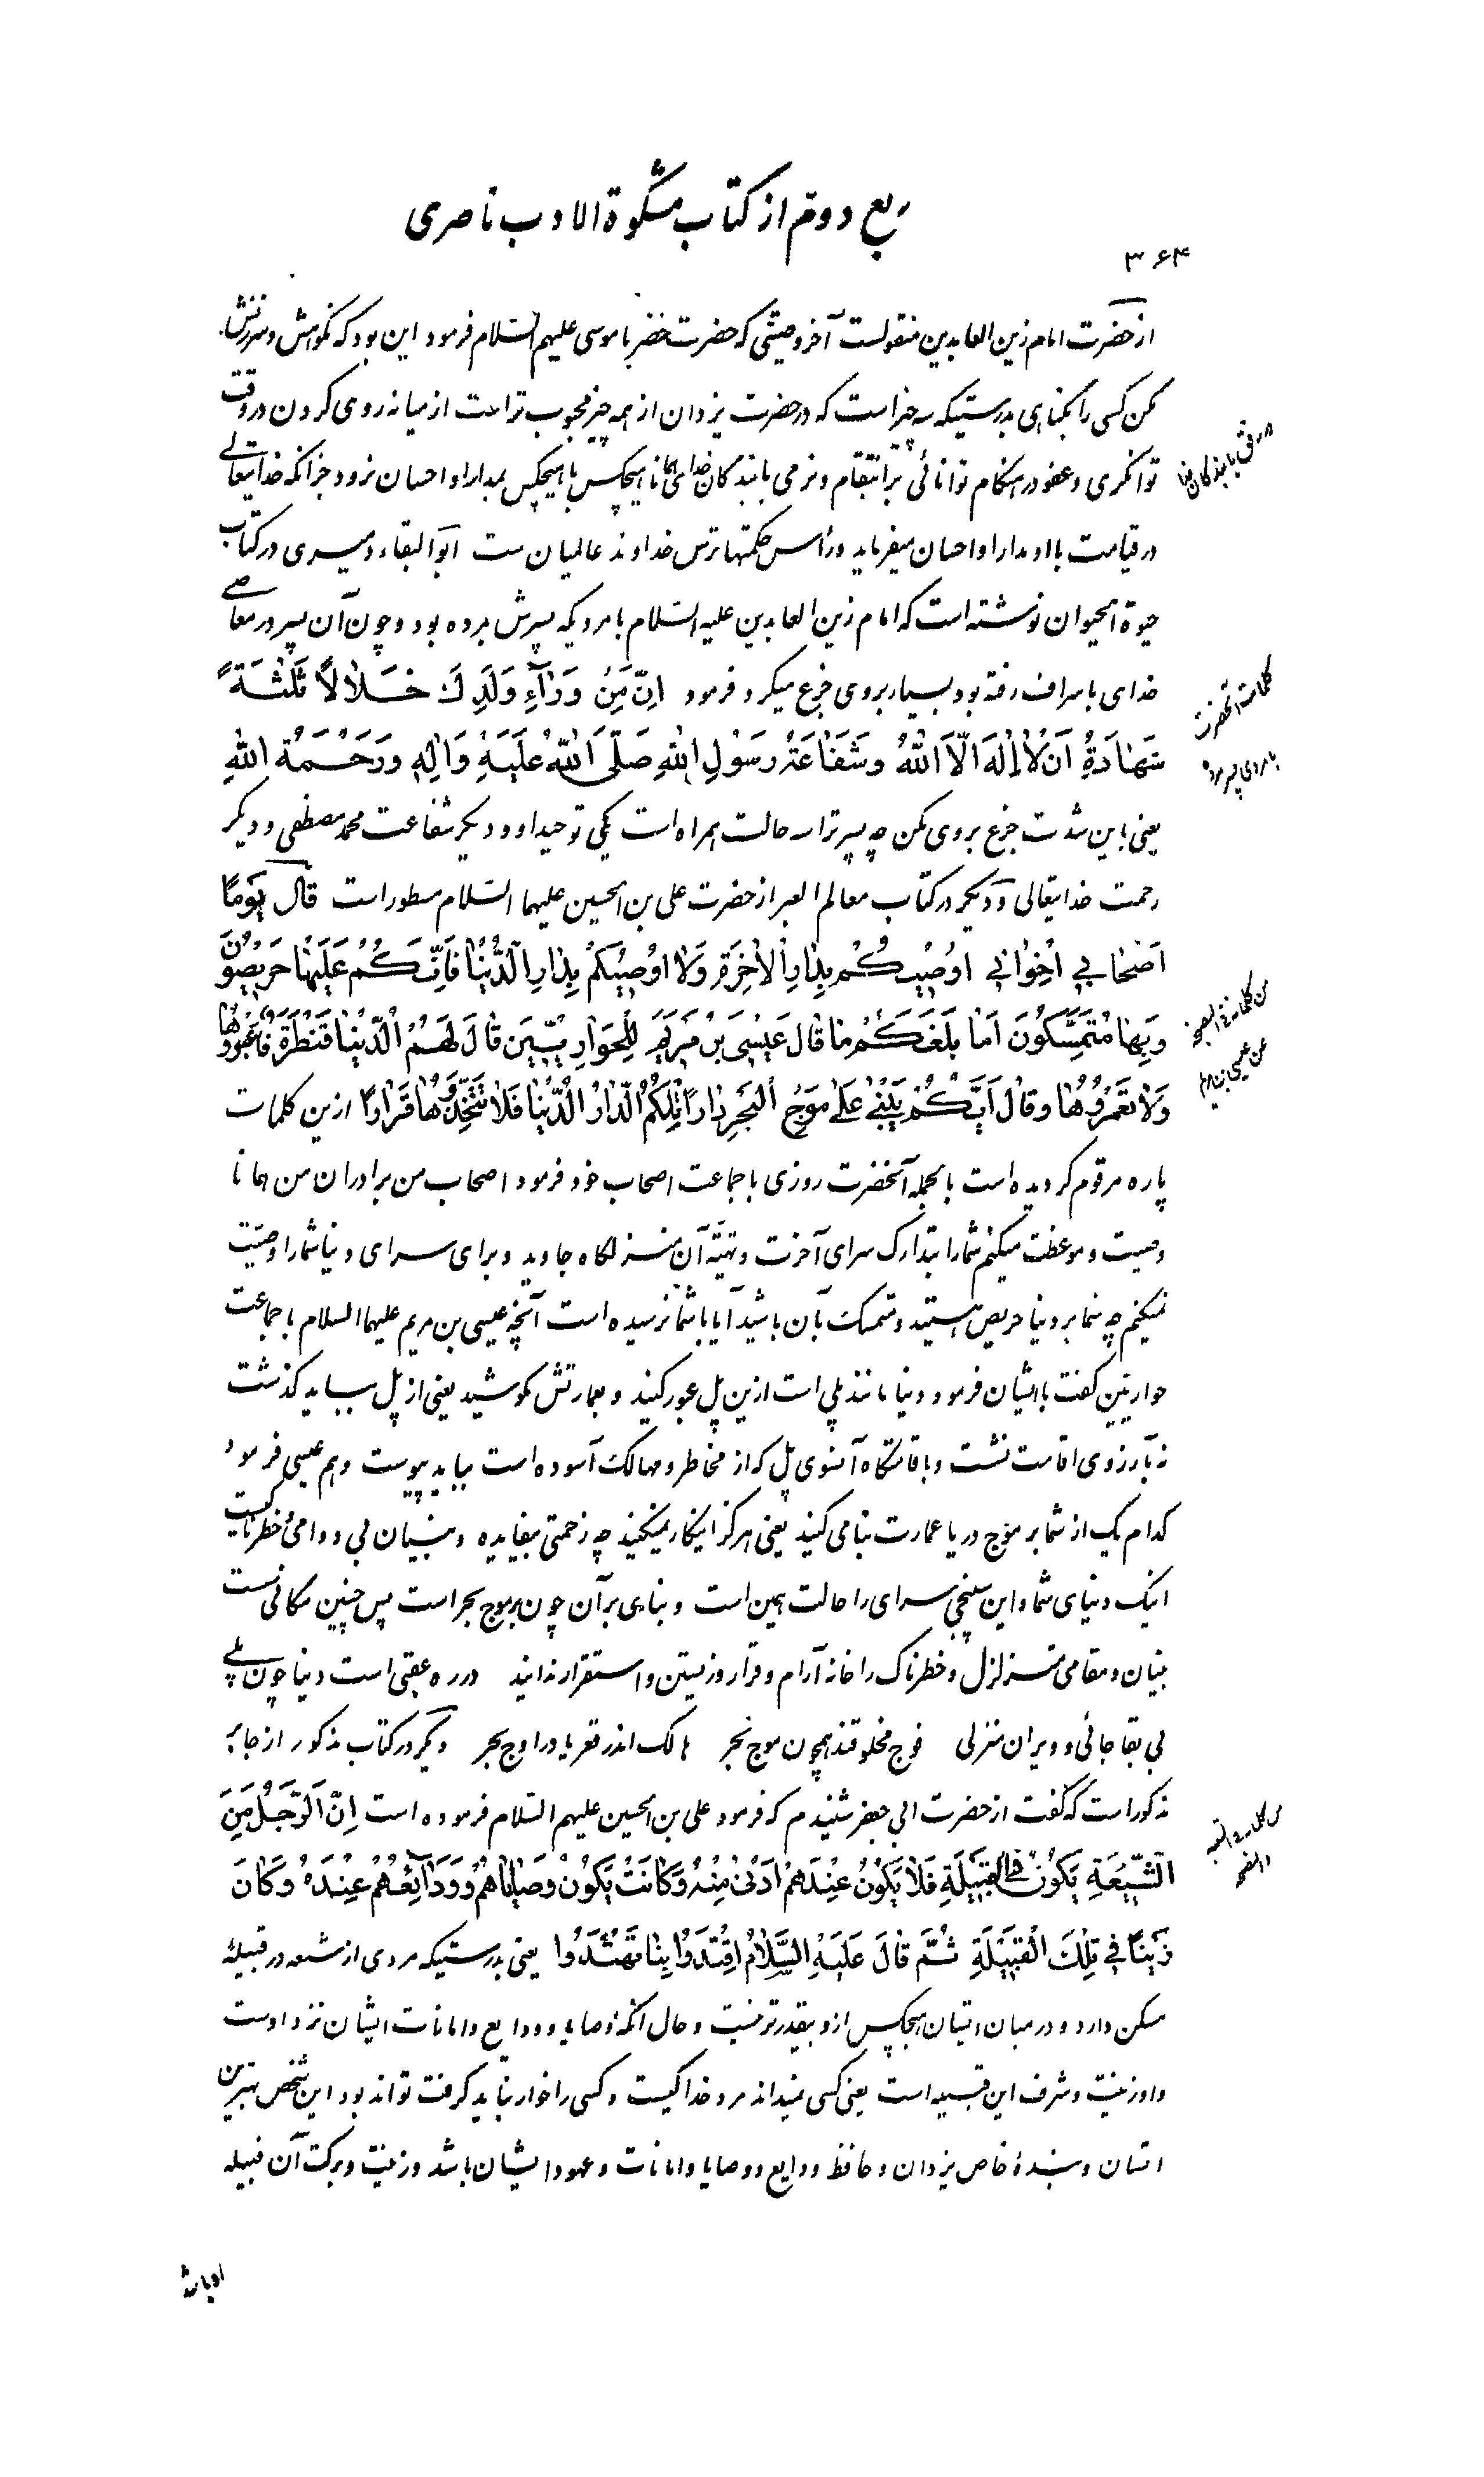 ربع دوم از کتاب مشکوة الادب ناصری
۳۶۴
از حضرت امام زین العابدین منقولست آخر وصیتی که حضرت خضر با موسی علیهم السلام فرمود این بود که نکوهش و سرزنش
مکن کسی را بگناهی بدرستیکه سه چیز است که در حضرت یزدان از همه چیز محبوب تر است از میانه روی کردن در وقت
توانگری و عفو در هنگام توانائی بر انتقام و نرمی با بندگان خدای همانا هیچکس با هیچکس بمدارا و احسان نرود جز آنکه خدایتعالی
در رفق با بندگان خدا
در قیامت با او مدارا و احسان میفرماید و رأس حکمتها ترس خداوند عالمیان ست ابو البقاء دمیری در کتاب
حیوة الحیوان نوشته است که امام زین العابدین علیه السلام با مردیکه پسرش مرده بود و چون آن پسر در معاصی
خدای باسراف رفته بود بسیار بروی جزع میکرد فرمود اِنَّ مِنْ وَرٰآءِ وَلَدِكَ خَلٰالًا ثَلٰثَةً
کلمات آنحضرت
شَهٰادَةُ اَنْ لٰا اِلٰهَ اِلَّا اللّٰهُ وَشَفٰاعَةُ رَسُوْلِ اللّٰهِ صَلَّى اللّٰهُ عَلَيْهِ وَاٰلِهِ وَرَحْمَةُ اللّٰهِ
با مردی پسر مرده
یعنی باین شدت جزع بروی مکن چه پسر ترا سه حالت همراه است یکی توحید او و دیگر شفاعت محمد مصطفی و دیگر
رحمت خدایتعالی و دیگر در کتاب معالم العبر از حضرت علی بن الحسین علیهما السلام مسطور است قٰالَ يَوْمًا
اَصْحٰابِي اِخْوٰانِي اُوْصِيْكُمْ بِدٰارِ الْاٰخِرَةِ وَلٰا اُوْصِيْكُمْ بِدٰارِ الدُّنْيٰا فَاِنَّكُمْ عَلَيْهٰا حَرِيْصُوْنَ
وَبِهٰا مُتَمَسِّكُوْنَ اَمٰا بَلَغَكُمْ مٰا قٰالَ عِيْسَى بْنُ مَرْيَمَ لِلْحَوٰارِيِّيْنَ قٰالَ لَهُمْ الدُّنْيٰا قَنْطَرَةٌ فَاعْبُرُوْهٰا
عن عیسی بن مریم
وَلٰا تَعْمُرُوْهٰا وَقٰالَ اَيُّكُمْ يَبْنِيْ عَلٰى مَوْجِ الْبَحْرِ دٰارًا تِلْكُمُ الدّٰارُ الدُّنْيٰا فَلٰا تَتَّخِذُوْهٰا قَرٰارًا ازین کلمات
پاره مرقوم گردیده است بالجمله آنحضرت روزی با جماعت اصحاب خود فرمود اصحاب من برادران من همانا
وصیت و موعظت میکنم شما را بتدارک سرای آخرت و تهیّه آن منزلگاه جاوید و برای سرای دنیا شما را وصیّت
نمیکنم چه شما بر دنیا حریص هستید و متمسک بآن باشید آیا با شما نرسیده است آنچه عیسی بن مریم علیهما السلام با جماعت
حواریین گفت با ایشان فرمود دنیا مانند پلی است ازین پل عبور کنید و بعمارتش نکوشید یعنی از پل بباید گذشت
نه بآرزوی اقامت نشست و باقامتگاه آنسوی پل که از مخاطر و مهالک آسوده است بباید پیوست و هم عیسی فرمود
کدام یک از شما بر موج دریا عمارت بنا می کنید یعنی هرگز اینکار نمیکنید چه زحمتی بیفایده و بنیان بی دوامی خطرناکیست
اینک دنیای شما و این سپنجی سرای را حالت همین است و بنای بر آن چون بر موج بحر است پس چنین مکانی سست
بنیان و مقامی متزلزل و خطرناک را خانه آرام و قرار و زیستن و استقرار ندانید در ره عقبی است دنیا چون پلی
بی بقا جائی و ویران منزلی فوج مخلوقند همچون موج بحر هالک اندر قعر یا در اوج بحر و دیگر در کتاب مذکور از جابر
مذکور است که گفت از حضرت ابی جعفر شنیدم که فرمود علی بن الحسین علیهم السلام فرموده است اِنَّ الرَّجُلَ مِنَ
الشِّيْعَةِ يَكُوْنُ فِي الْقَبِيْلَةِ فَلٰا يَكُوْنُ عِنْدَهُمْ اَدْنٰى مِنْهُ وَكٰانَتْ يَكُوْنُ وَصٰايٰاهُمْ وَوَدٰائِعُهُمْ عِنْدَهُ وَكٰانَ
زَيْنًا فِي تِلْكَ الْقَبِيْلَةِ ثُمَّ قٰالَ عَلَيْهِ السَّلٰامُ اِقْتَدُوْا بِنٰا تَهْتَدُوْا یعنی بدرستیکه مردی از شیعه در قبیلهٔ
مسکن دارد و در میان ایشان هیچکس از و بیقدرتر نیست و حال آنکه وصایا و ودایع و امانات ایشان نزد اوست
و او زینت و شرف این قبیله است یعنی کسی نمیداند مرد خدا کیست و کسی را خوار نباید گرفت تواند بود این شخص بهترین
انسان و بندهٔ خاص یزدان و حافظ ودایع و وصایا و امانات و عهود ایشان باشد و زینت و برکت آن قبیله
او باشد